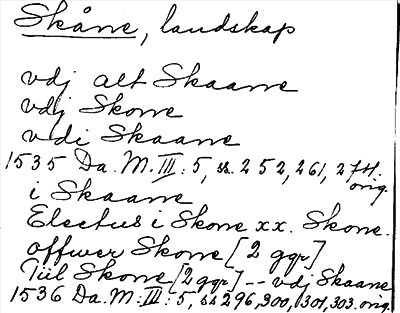 Skåne, landskap
vdj alt Skaane
vdj Skone
vdi Skaane
1535 Da. M. III: 5, ss. 252, 261, 274. orig.
i Skaane
Electus i Skone xx. Skone.
offwer Skone [2 ggr]
Tiil Skone [2 ggr] -- vdj Skaane
1536 Da. M. III: 5, ss 296, 300, 301, 303. orig.